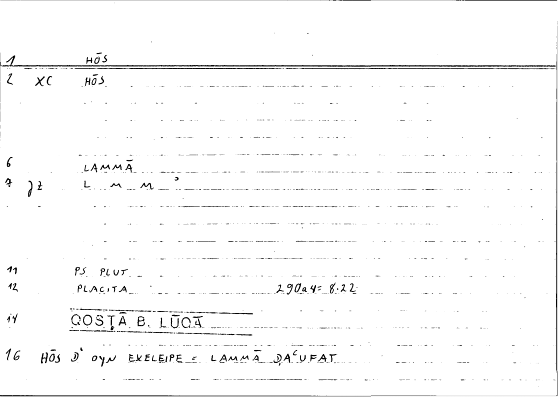 1 HŌS
2 XC HŌS
6 LAMMĀ
7 JZ L M M ʾ
11 PS. PLUT.
12 PLACITA 290a4 = 8.22
14 QOSṬĀ B. LŪQĀ
16 HŌS D' OYN EXELEIPE = LAMMĀ ḌAʿUFAT